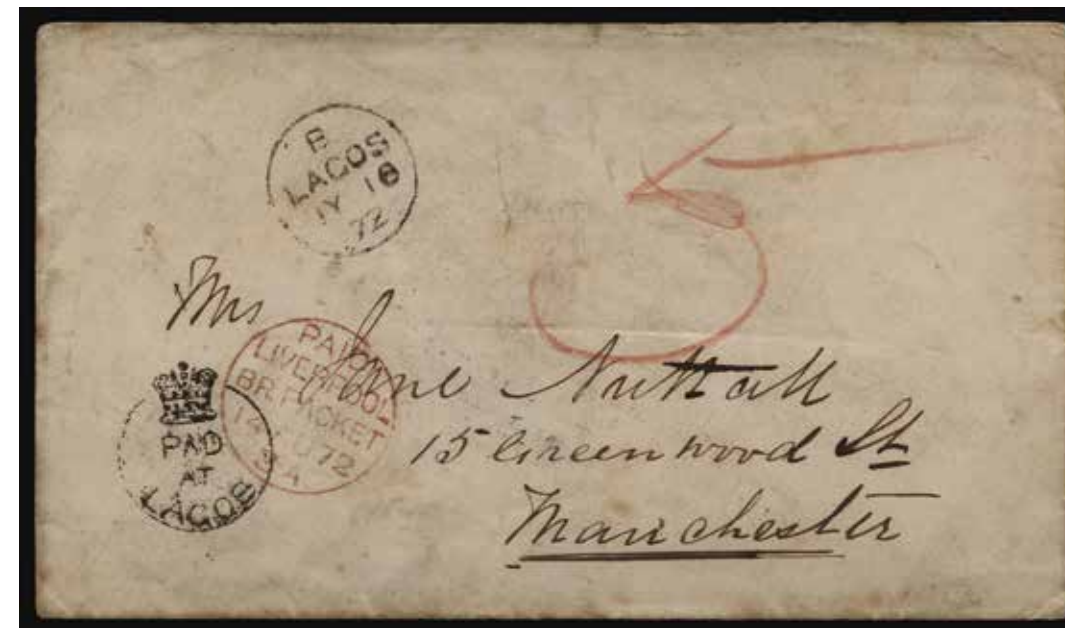 B
LAGOS
MY 18
72
5
Mrs Jane Nuttall
15 Greenwood St
Manchester
PAID
LIVERPOOL
BR. PACKET
14 JU 72
PAID
AT
LAGOS